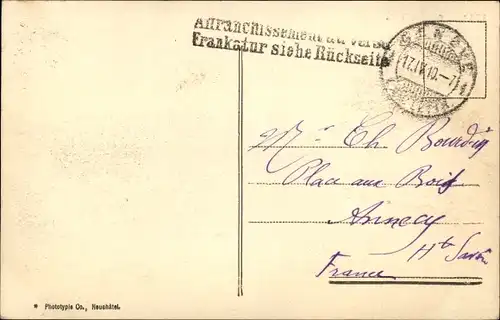 Affranchissement au verso
Frankatur siehe Rückseite
GENÈVE 1
17.IV.10.-7
LETTR.
Mr Ch Bourdin
Place aux Bois
Annecy
Hte Savoie
France
* Phototypie Co., Neuchâtel.